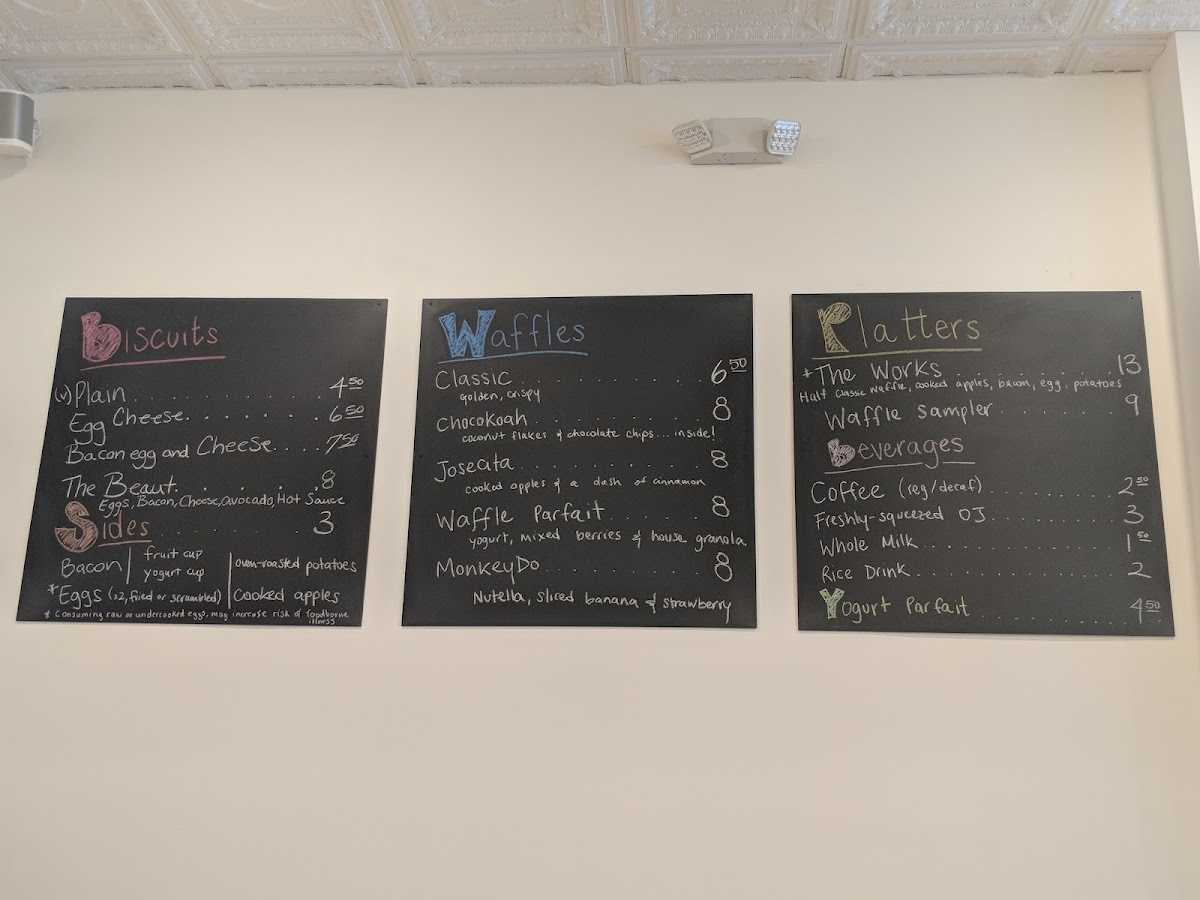 Biscuits
(v) Plain . . . . . . . . . . . . 4 50
Egg Cheese . . . . . . . 6 50
Bacon egg and Cheese . . . . 7 50
The Beaut . . . . . . . 8
Eggs, Bacon, Cheese, avocado, Hot Sauce
Sides . . . . . . . 3
Bacon | fruit cup
yogurt cup | oven-roasted potatoes
*Eggs (x2, fried or scrambled) | Cooked apples
* Consuming raw or undercooked eggs, may increase risk of foodborne
illness
Waffles
Classic . . . . . . . . . . . 6 50
golden, crispy
Chocokoah . . . . . . . . 8
coconut flakes & chocolate chips... inside!
Josecita . . . . . . . . . . 8
cooked apples & a dash of cinnamon
Waffle Parfait . . . . . . 8
yogurt, mixed berries & house granola
MonkeyDo . . . . . . . . . 8
Nutella, sliced banana & strawberry
Platters
*The Works . . . . . . . . . . 13
Half Classic Waffle, cooked apples, bacon, egg, potatoes
Waffle Sampler . . . . . . . . 9
Beverages
Coffee (reg/decaf) . . . . . . . 2 50
Freshly-squeezed OJ . . . . . . . 3
Whole Milk . . . . . . . . . . 1 50
Rice Drink . . . . . . . . . . 2
Yogurt Parfait . . . . . . . . 4 50